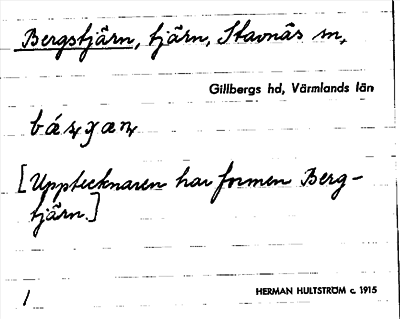 Bergstjärn, tjärn, Stavnäs sn,
Gillbergs hd, Värmlands län
[Upptecknaren har formen Berg-
tjärn.]
1
HERMAN HULTSTRÖM c. 1915